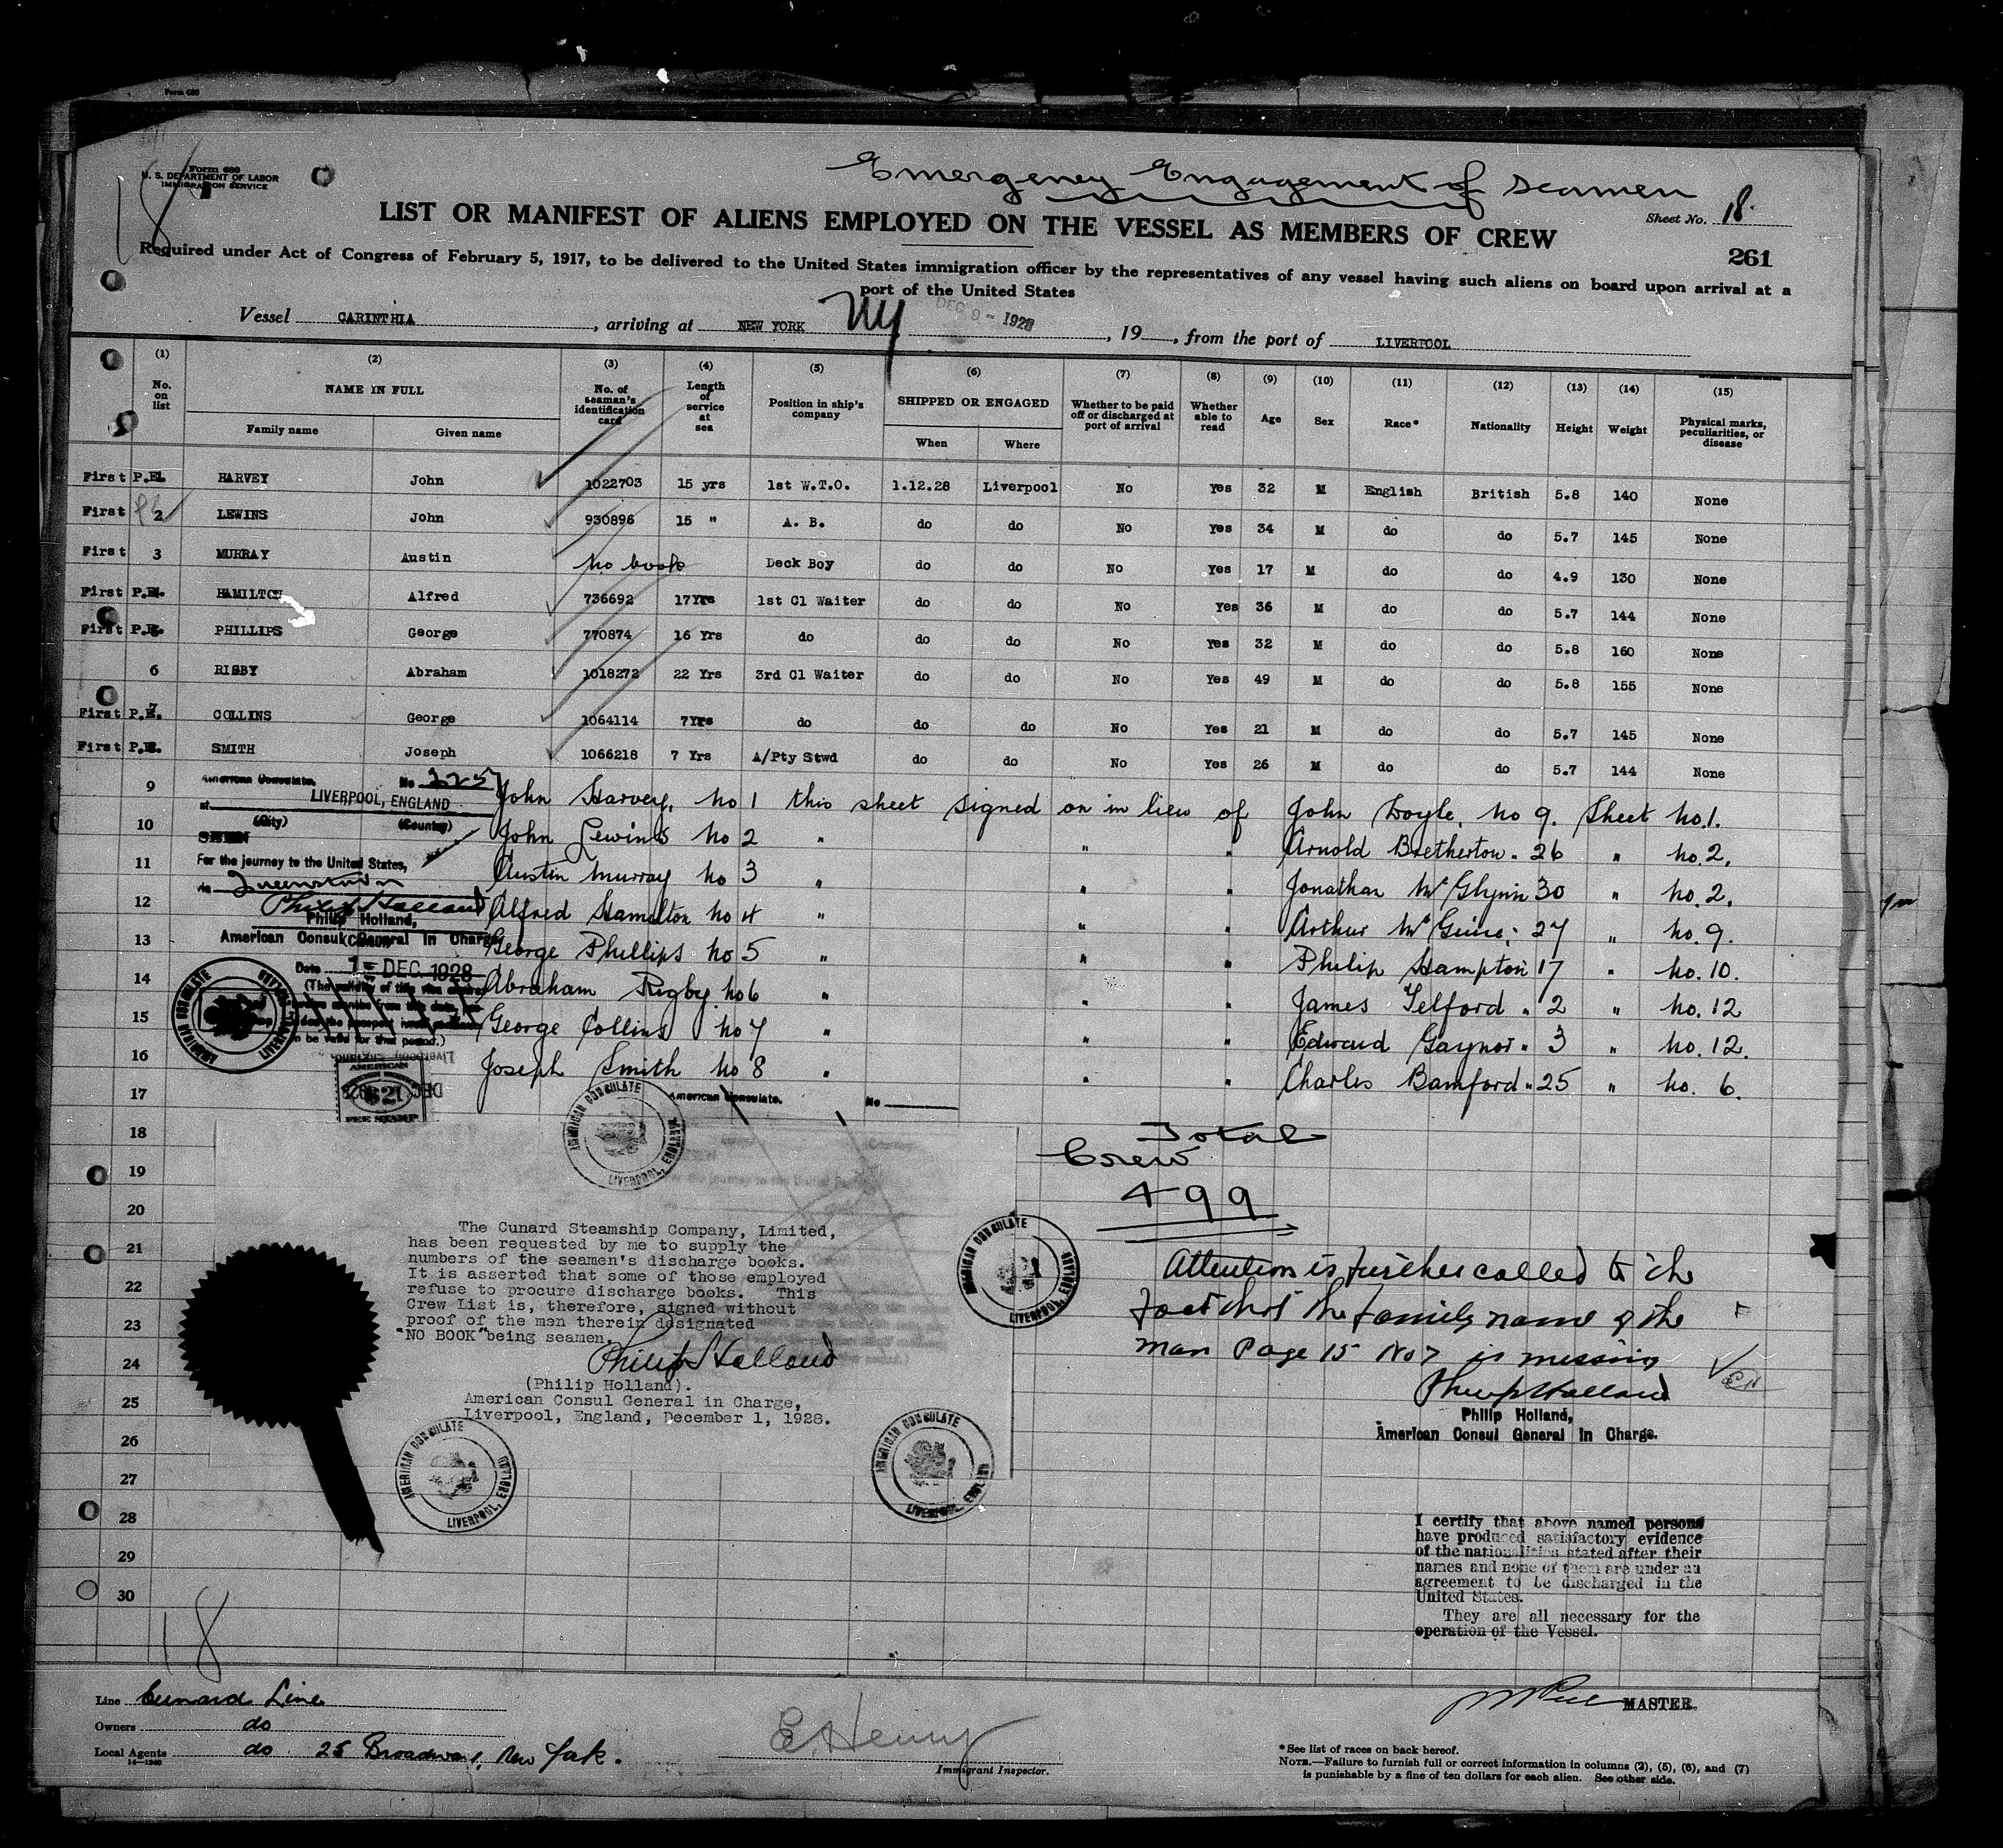 Form 680
Form 680
U. S. DEPARTMENT OF LABOR
IMMIGRATION SERVICE
18
Emergency Engagement of Seamen
LIST OR MANIFEST OF ALIENS EMPLOYED ON THE VESSEL AS MEMBERS OF CREW
Sheet No. 18.
261
Required under Act of Congress of February 5, 1917, to be delivered to the United States immigration officer by the representatives of any vessel having such aliens on board upon arrival at a
port of the United States
Vessel CARINTHIA, arriving at NEW YORK NY DEC 9 - 1928, 19__, from the port of LIVERPOOL
(1) (2) (3) (4) (5) (6) (7) (8) (9) (10) (11) (12) (13) (14) (15)
No. on list NAME IN FULL Family name Given name No. of seaman's identification card Length of service at sea Position in ship's company SHIPPED OR ENGAGED When Where Whether to be paid off or discharged at port of arrival Whether able to read Age Sex Race* Nationality Height Weight Physical marks, peculiarities, or disease
First P.E. 1 HARVEY John 1022703 15 yrs 1st W.T.O. 1.12.28 Liverpool No Yes 32 M English British 5.8 140 None
First 2 LEWINS John 930896 15 " A. B. do do No Yes 34 M do do 5.7 145 None
First 3 MURRAY Austin no book Deck Boy do do No Yes 17 M do do 4.9 130 None
First P.E. 4 HAMILTON Alfred 736692 17Yrs 1st Cl Waiter do do No Yes 36 M do do 5.7 144 None
First P.E. 5 PHILLIPS George 770874 16 Yrs do do do No Yes 32 M do do 5.8 160 None
6 RIGBY Abraham 1018272 22 Yrs 3rd Cl Waiter do do No Yes 49 M do do 5.8 155 None
First P.E. 7 COLLINS George 1064114 7Yrs do do do No Yes 21 M do do 5.7 145 None
First P.E. 8 SMITH Joseph 1066218 7 Yrs A/Pty Stwd do do No Yes 26 M do do 5.7 144 None
9 John Harvey. No 1 this sheet signed on in lieu of John Doyle. No 9. Sheet No.1.
10 John Lewins No 2 " " " Arnold Bretherton " 26 " No.2.
11 Austin Murray No 3 " " " Jonathan McGlynn 30 " No.2.
12 Alfred Hamilton No 4 " " " Arthur McGuire " 27 " No.9.
13 George Phillips No 5 " " " Philip Hampton 17 " No.10.
14 Abraham Rigby No 6 " " " James Telford " 2 " No.12
15 George Collins No 7 " " " Edward Gaynor " 3 " No.12.
16 Joseph Smith No 8 " " " Charles Bamford " 25 " No. 6.
17
American Consulate, No 225
at LIVERPOOL, ENGLAND
(City) (Country)
SEEN
For the journey to the United States,
via Queenstown
Philip Holland
Philip Holland,
American Consul General In Charge
Date 1 - DEC. 1928
AMERICAN CONSULATE
LIVERPOOL, ENGLAND
AMERICAN
FEE STAMP
American Consulate. No
AMERICAN CONSULATE
LIVERPOOL, ENGLAND
18
19
20
21
22
23
24
25
26
27
28
29
30
Total
Crew
499
The Cunard Steamship Company, Limited,
has been requested by me to supply the
numbers of the seamen's discharge books.
It is asserted that some of those employed
refuse to procure discharge books. This
Crew List is, therefore, signed without
proof of the men therein designated
"NO BOOK" being seamen.
Philip Holland
(Philip Holland).
American Consul General in Charge,
Liverpool, England, December 1, 1928.
AMERICAN CONSULATE
LIVERPOOL, ENGLAND
AMERICAN CONSULATE
LIVERPOOL, ENGLAND
AMERICAN CONSULATE
LIVERPOOL, ENGLAND
Attention is further called to the
fact that the family name of the
man Page 15 No 7 is missing
Philip Holland
Philip Holland,
American Consul General In Charge.
I certify that above named persons
have produced satisfactory evidence
of the nationalities stated after their
names and none of them are under an
agreement to be discharged in the
United States.
They are all necessary for the
operation of the Vessel.
MASTER.
18
Line Cunard Line
Owners do
Local Agents do 25 Broadway, New York.
14—1940
E. Henry
Immigrant Inspector.
*See list of races on back hereof.
NOTE.—Failure to furnish full or correct information in columns (2), (5), (6), and (7)
is punishable by a fine of ten dollars for each alien. See other side.